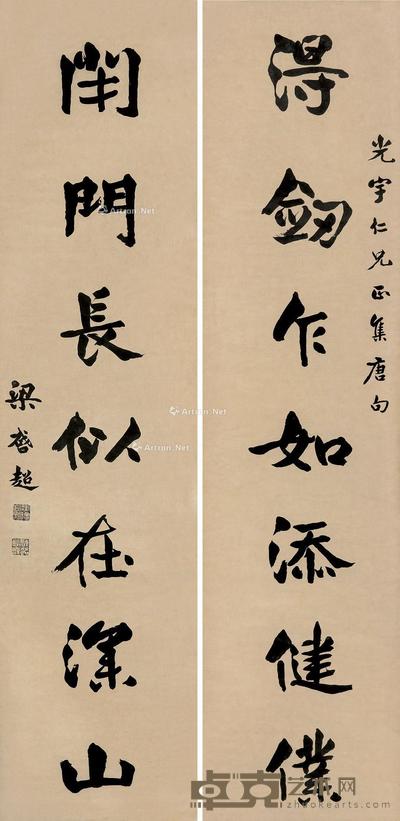 光宇仁兄正集唐句
得劒乍如添健僕
閉門長似在深山
梁啓超
Artron.Net
Artron.Net
Artron.Net
Artron.Net
卓克艺术网
zhuokearts.com